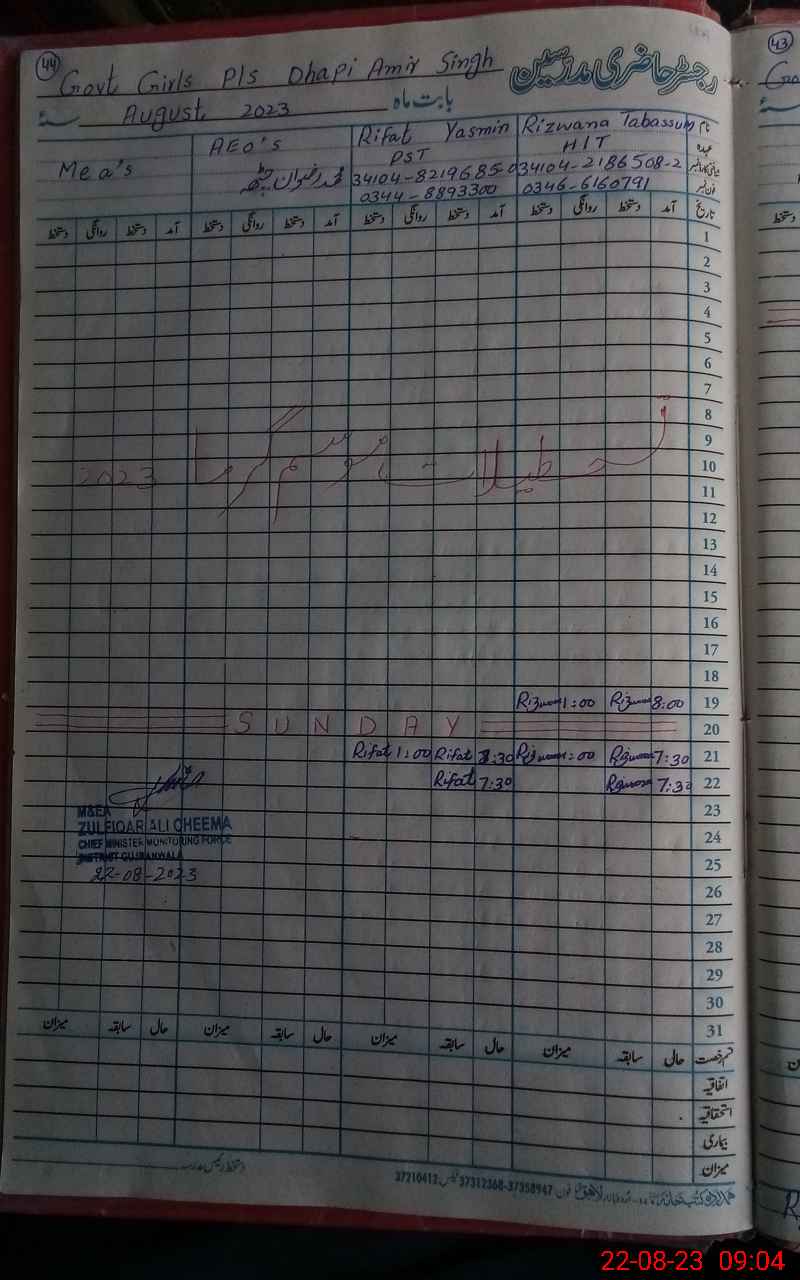 44
Govt Girls P/s Dhapi Amir Singh
رجسٹر حاضری مدرسین
August 2023
بابت ماہ
سنہ
Mea's
AEO's
Rifat Yasmin
Rizwana Tabassum
نام
PST
HIT
عہدہ
محمد رضوان چٹھہ
34104-8219685-0
34104-2186508-2
0344-8893300
0346-6160791
دستخط روانگی دستخط آمد دستخط روانگی دستخط آمد دستخط روانگی دستخط آمد دستخط روانگی دستخط آمد تاریخ
1
2
3
4
5
6
7
8
9
تعطیلات موسم گرما 2023
10
11
12
13
14
15
16
17
18
1:00 8:00 19
SUNDAY 20
Rifat 1:00 Rifat 7:30 1:00 7:30 21
Rifat 7:30 7:30 22
M&EA
ZULFIQAR ALI CHEEMA
CHIEF MINISTER MONITORING FORCE
DISTRICT GUJRANWALA
22-08-2023
23
24
25
26
27
28
29
30
31
میزان سابقہ حال میزان سابقہ حال میزان سابقہ حال میزان سابقہ حال قسم رخصت
اتفاقیہ
استحقاقیہ
بیماری
میزان
دستخط رئیس مدرسہ
فون 37358947-37312368 فیکس 37210412
43
22-08-23 09:04